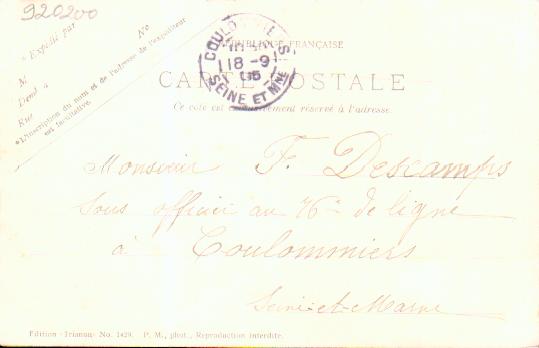 920200
* Expédié par
No
M
Demt à
Rue
*L'inscription du nom et de l'adresse de l'expéditeur
est facultative.
COULOMMIERS
18-9
05
SEINE ET MNE
RÉPUBLIQUE FRANÇAISE
CARTE POSTALE
Ce côté est exclusivement réservé à l'adresse.
Monsieur F. Descamps
Sous officier au 76e de ligne
à Coulommiers
Seine-et-Marne
Edition «Trianon» No. 1429. P. M., phot., Reproduction interdite.